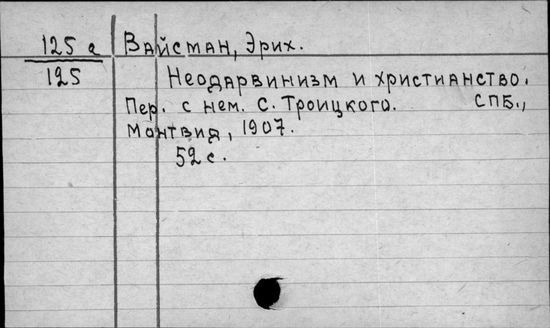 125 а Вайсман, Эрих.
125 Неодарвинизм и христианство.
Пер. с нем. С. Троицкого. СПБ.,
Монтвид, 1907.
52 с.